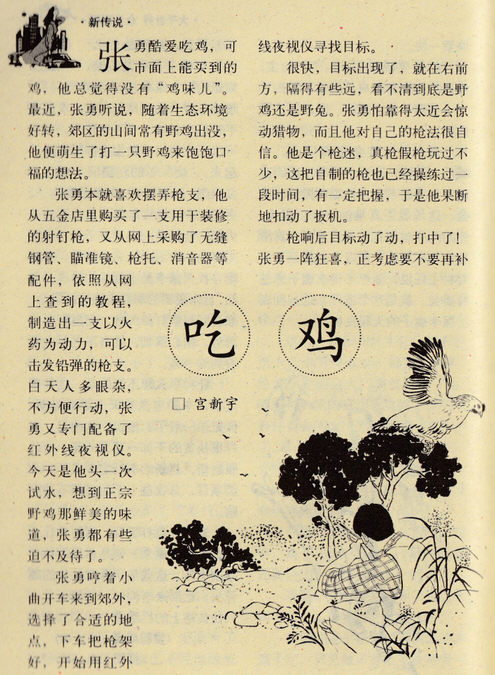 ·新传说·
张勇酷爱吃鸡，可
市面上能买到的
鸡，他总觉得没有“鸡味儿”。
最近，张勇听说，随着生态环境
好转，郊区的山间常有野鸡出没，
他便萌生了打一只野鸡来饱饱口
福的想法。
张勇本就喜欢摆弄枪支，他
从五金店里购买了一支用于装修
的射钉枪，又从网上采购了无缝
钢管、瞄准镜、枪托、消音器等
配件，依照从网
上查到的教程，
制造出一支以火
药为动力，可以
击发铅弹的枪支。
白天人多眼杂，
不方便行动，张
勇又专门配备了
红外线夜视仪。
今天是他头一次
试水，想到正宗
野鸡那鲜美的味
道，张勇都有些
迫不及待了。
张勇哼着小
曲开车来到郊外，
选择了合适的地
点，下车把枪架
好，开始用红外
线夜视仪寻找目标。
很快，目标出现了，就在右前
方，隔得有些远，看不清到底是野
鸡还是野兔。张勇怕靠得太近会惊
动猎物，而且他对自己的枪法很自
信。他是个枪迷，真枪假枪玩过不
少，这把自制的枪也已经操练过一
段时间，有一定把握，于是他果断
地扣动了扳机。
枪响后目标动了动，打中了！
张勇一阵狂喜，正考虑要不要再补
吃鸡
□ 宫新宇